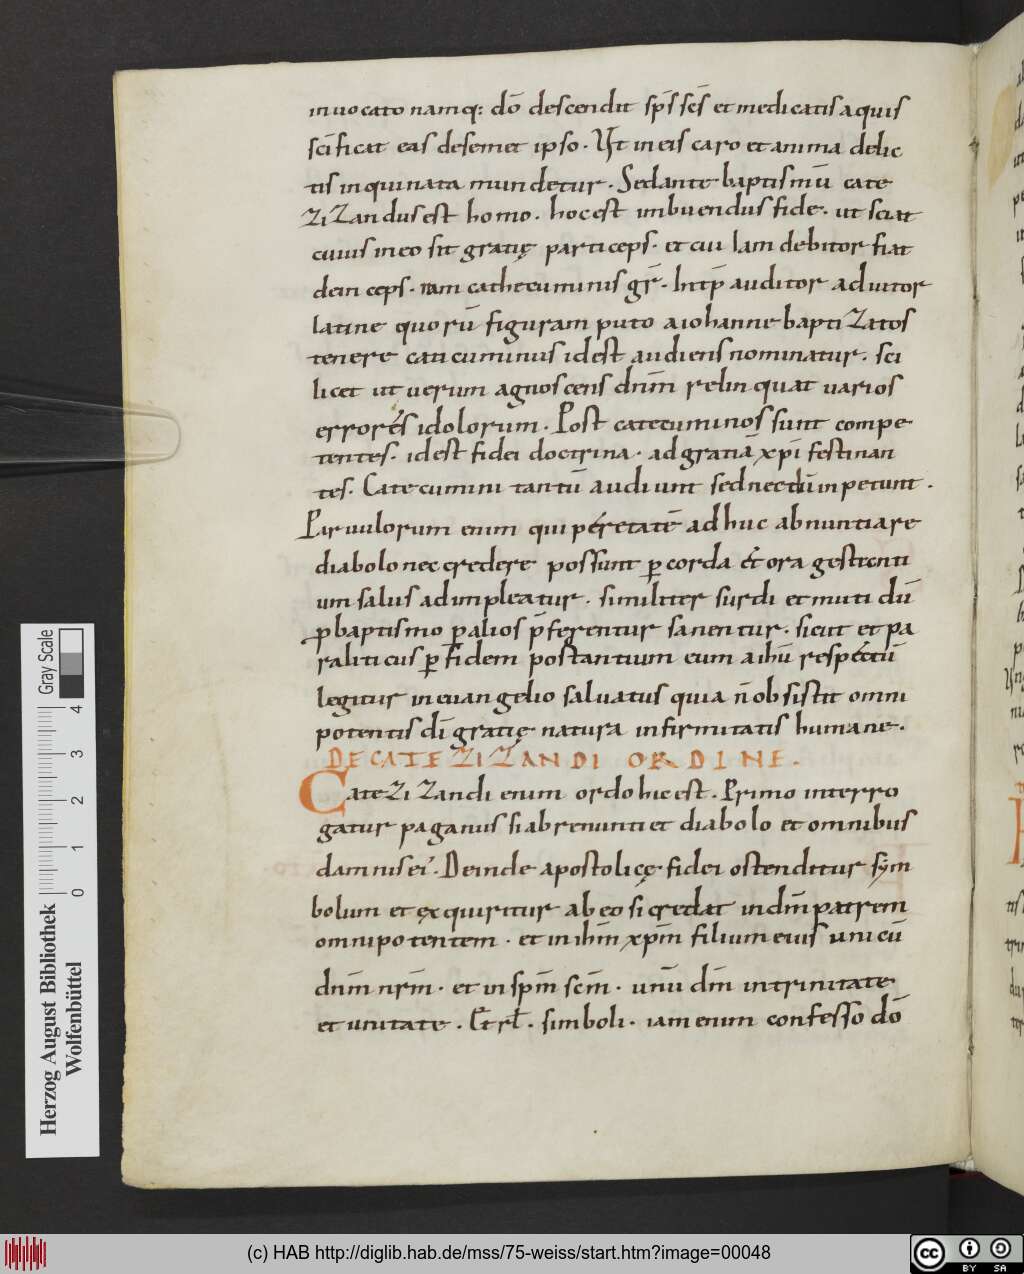 inuocato namq: dō descendit sp̄s sc̄s et medicatis aquis
sc̄ificat eas desemet ipso. Ut in eis caro et anima delic
tis inquinata mundetur. Sed ante baptismū cate
zizandus est homo. hoc est imbuendus fide. ut sciat
cuius in eo sit gratię particeps. et cui iam debitor fiat
dein ceps. nam cathecuminus gr̄. htt p̄ auditor aduitor
latine quorū figuram puto a iohanne baptizatos
tenere caticuminus idest audiens nominatur. sci
licet ut uerum agnoscens dn̄m relinquat uarios
errores idolorum. Post catecuminos sunt compe
tentes. idest fidei doctrina. ad gratiā xp̄i festinan
tes. Catecumini tantū audiunt sed necdū inpetunt.
Paruulorum enim qui per etatē adhuc abnuntiare
diabolo nec credere possunt ꝑ corda et ora gestienti
um salus adimpleatur. similiter surdi et muti dū
ꝑ baptismo ꝑ alios p̄ferentur sanentur. sicut et pa
raliticus ꝑ fidem postantium eum a ih̄u respectū
legitur in euangelio saluatus quia n̄ obsistit omni
potentis dī gratię natura infirmitatis humane.
DE CATEZIZANDI ORDINE.
Catezizandi enim ordo hic est. Primo interro
gatur paganus si abrenuntiet diabolo et omnibus
damnis ei'. Deinde apostolicę fidei ostenditur sym
bolum et ęxquiritur ab eo si credat in dm̄ patrem
omnipotentem. et in ih̄m xp̄m filium eius unicū
dn̄m nr̄m. et in sp̄m sc̄m. unū dm̄ in trinitate
et unitate. Et rł. simboli. iam enim confesso dō
Herzog August Bibliothek
Wolfenbüttel
0 1 2 3 4
Gray Scale
(c) HAB http://diglib.hab.de/mss/75-weiss/start.htm?image=00048
cc BY SA